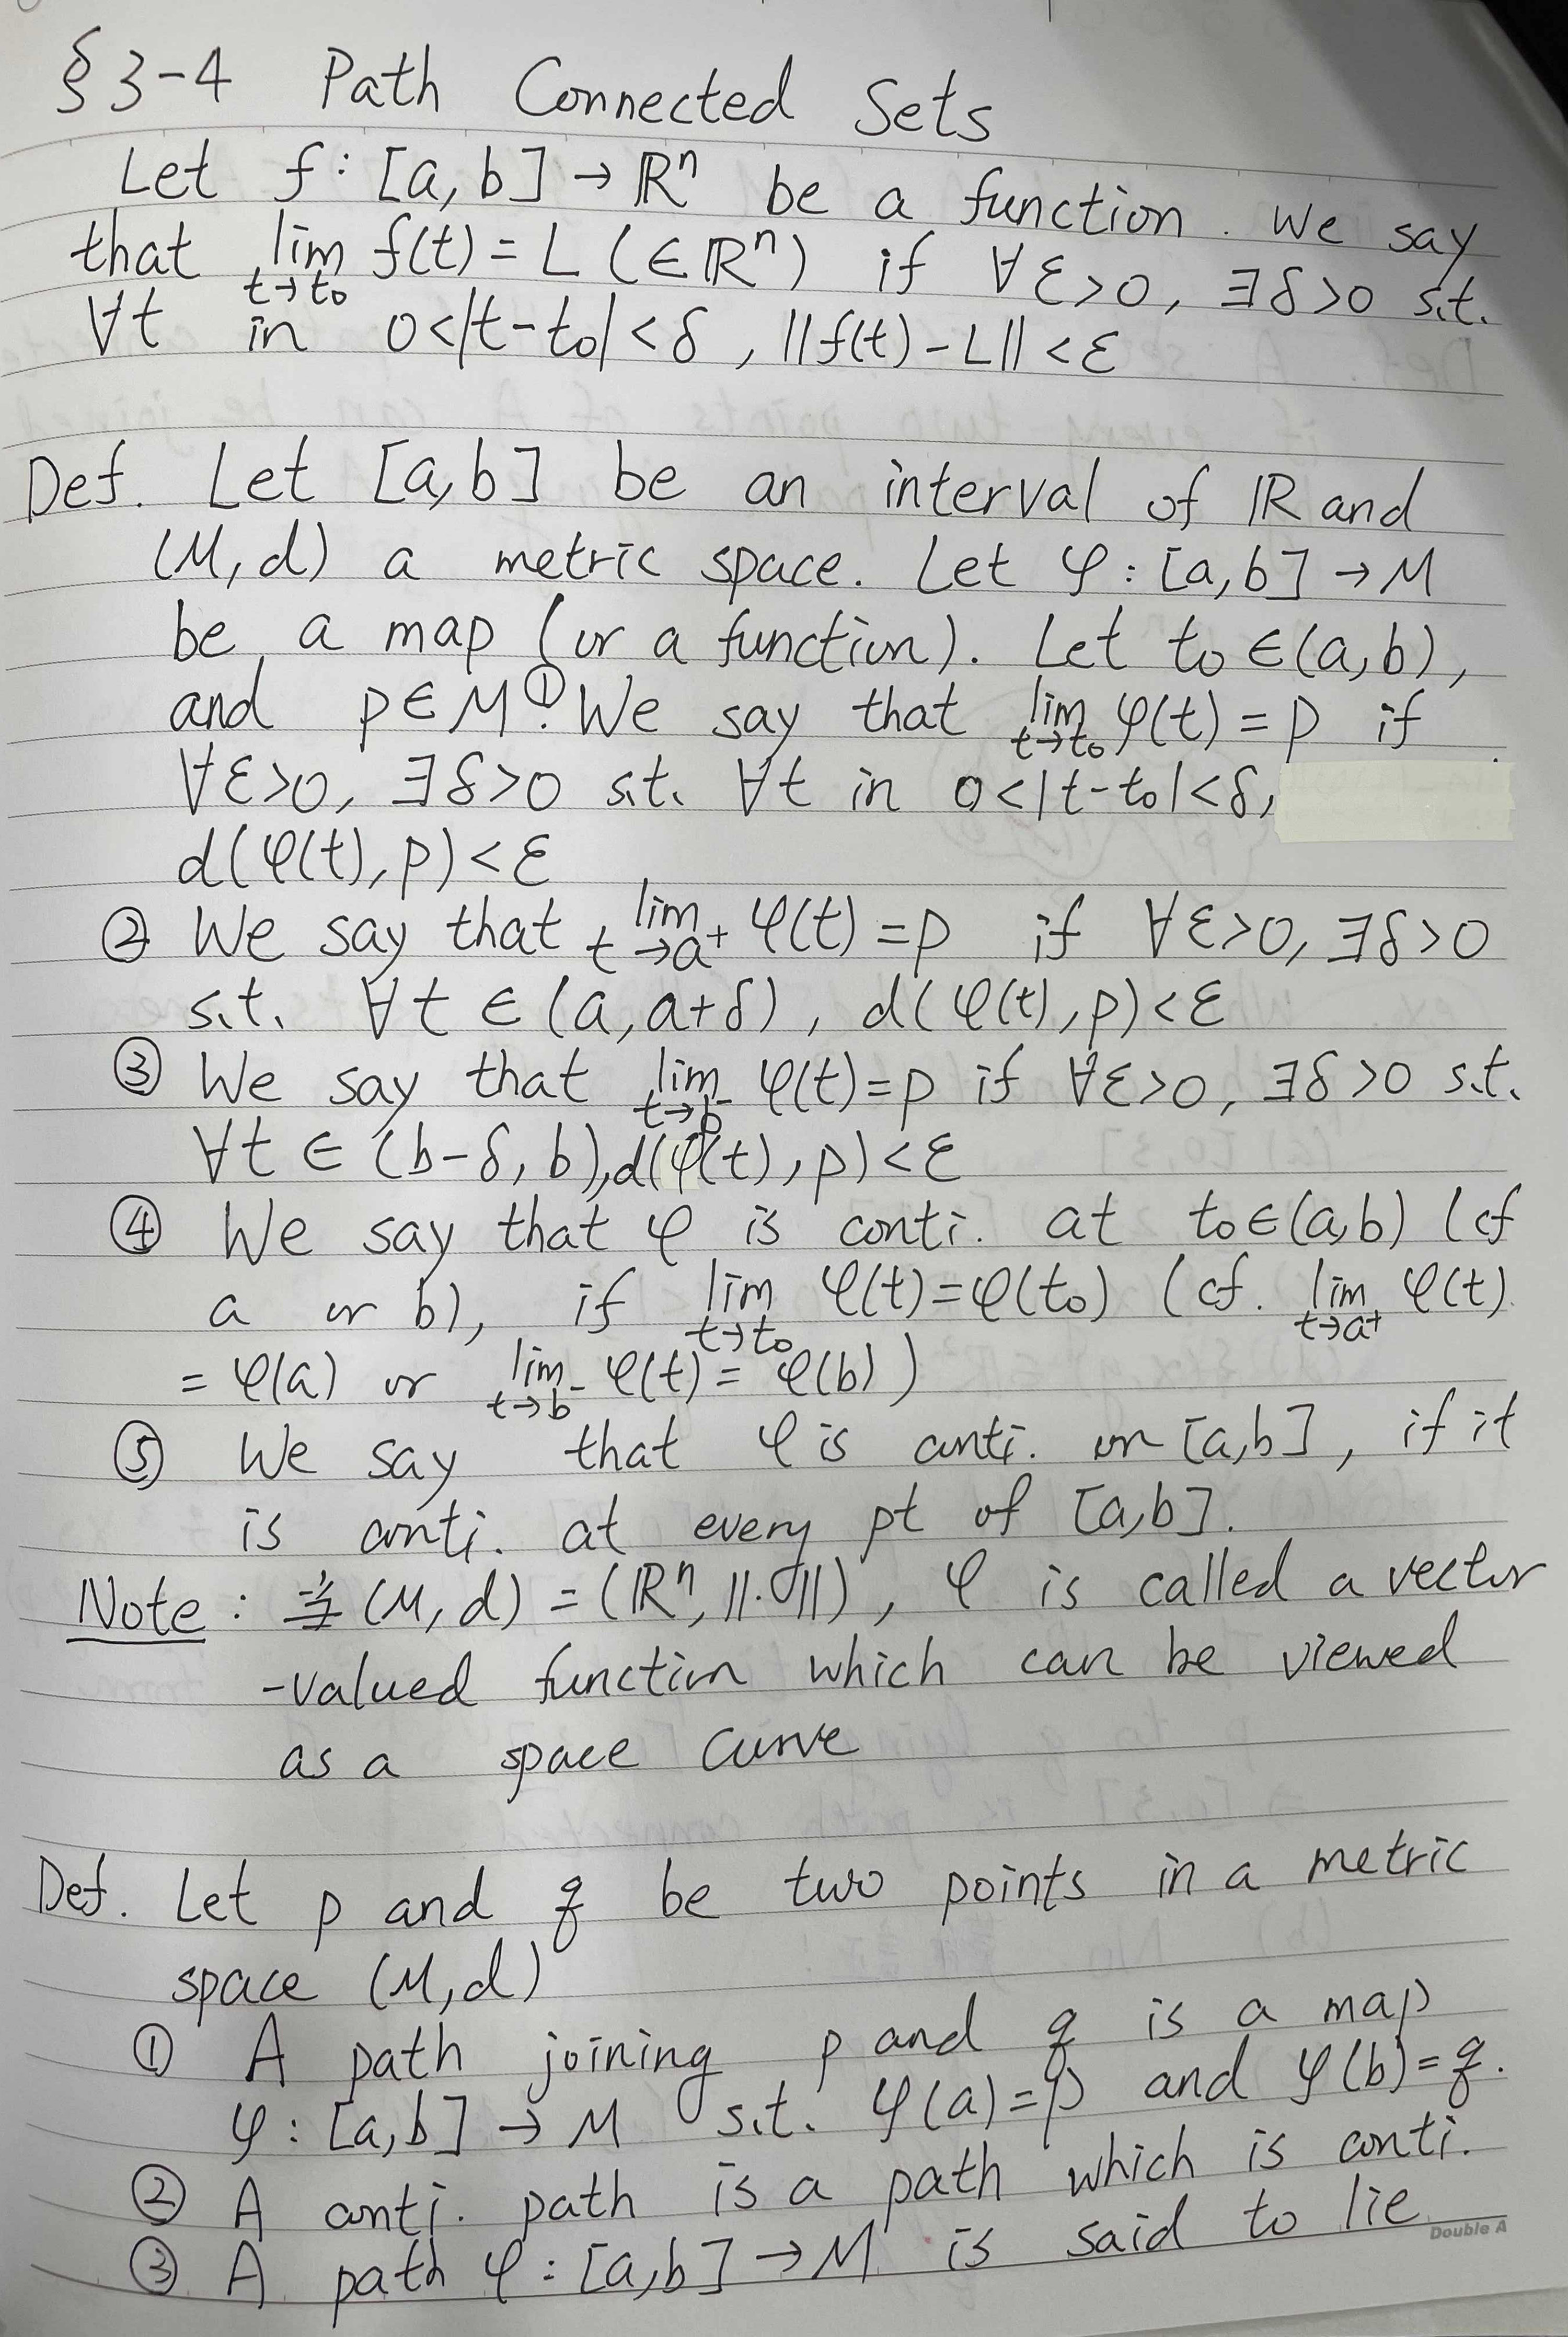 §3-4 Path Connected Sets
Let f: [a,b] → ℝⁿ be a function. We say
that lim_{t→t₀} f(t) = L (∈ℝⁿ) if ∀ε>0, ∃δ>0 s.t.
∀t in 0<|t-t₀|<δ, ||f(t)-L||<ε
Def. Let [a,b] be an interval of ℝ and
(M,d) a metric space. Let φ: [a,b] → M
be a map (or a function). Let t₀∈(a,b),
and p∈M. ① We say that lim_{t→t₀} φ(t) = p if
∀ε>0, ∃δ>0 s.t. ∀t in 0<|t-t₀|<δ,
d(φ(t),p)<ε
② We say that lim_{t→a⁺} φ(t) = p if ∀ε>0, ∃δ>0
s.t. ∀t ∈ (a,a+δ), d(φ(t),p)<ε
③ We say that lim_{t→b⁻} φ(t) = p if ∀ε>0, ∃δ>0 s.t.
∀t ∈ (b-δ,b), d(φ(t),p)<ε
④ We say that φ is conti. at t₀∈(a,b) (cf
a or b), if lim_{t→t₀} φ(t)=φ(t₀) (cf. lim_{t→a⁺} φ(t)
= φ(a) or lim_{t→b⁻} φ(t) = φ(b))
⑤ We say that φ is conti. on [a,b], if it
is conti. at every pt of [a,b].
Note: 当 (M,d) = (ℝⁿ, ||·||), φ is called a vector
-valued function which can be viewed
as a space curve
Def. Let p and q be two points in a metric
space (M,d)
① A path joining p and q is a map
φ: [a,b] → M s.t. φ(a)=p and φ(b)=q.
② A conti. path is a path which is conti.
③ A path φ: [a,b] → M is said to lie
Double A